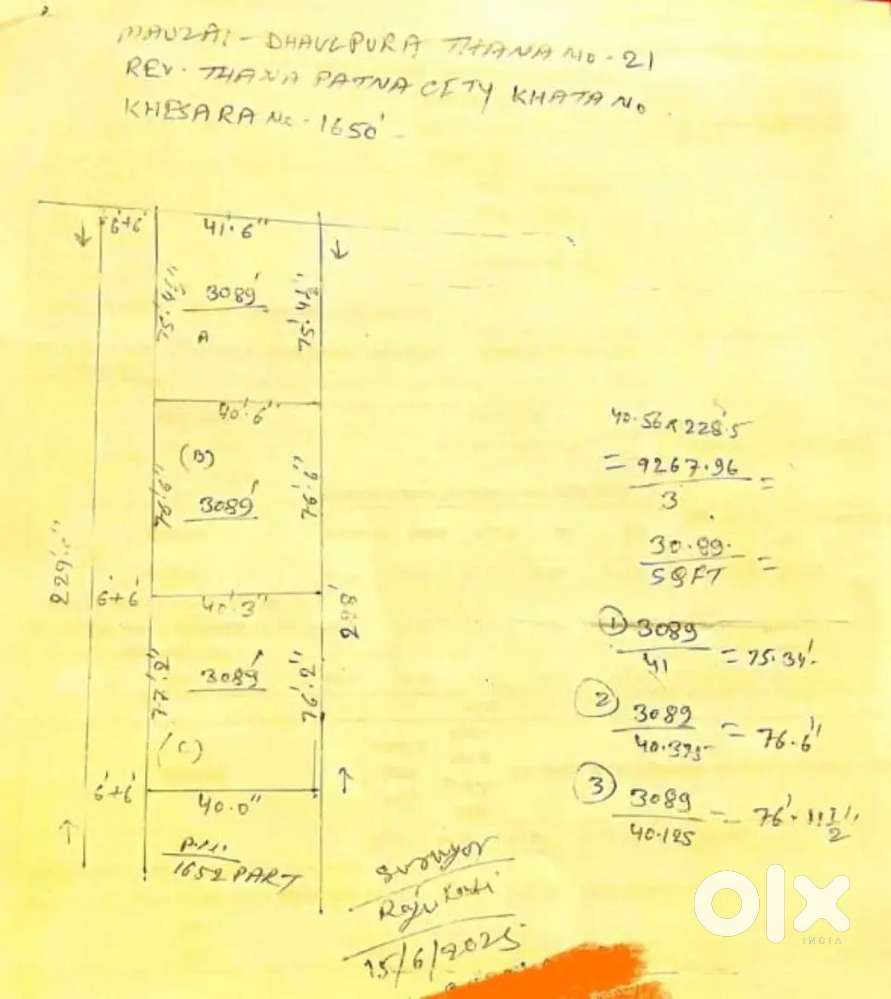 MAUZAI - DHAULPURA THANA NO - 21
REV. THANA PATNA CETY KHATA NO
KHESARA No - 1650'
6'+6' 41'.6"
3089'
75'.4½" 75'.4½"
A
40'.6"
(B)
3089'
76'.6" 76'.6"
229'
6'+6' 40'.3"
228'
3089'
77'.2½" 76'.2"
(C)
6'+6' 40.0"
1652 PART
40.56 x 228'.5
= 9267.96 =
3
30.89. =
SQFT
① 3089 = 75.34'
41
② 3089 = 76.6"
40.375
③ 3089 = 76'.11½"
40.125
Survyor
Raju
15/6/2025
olx
INDIA